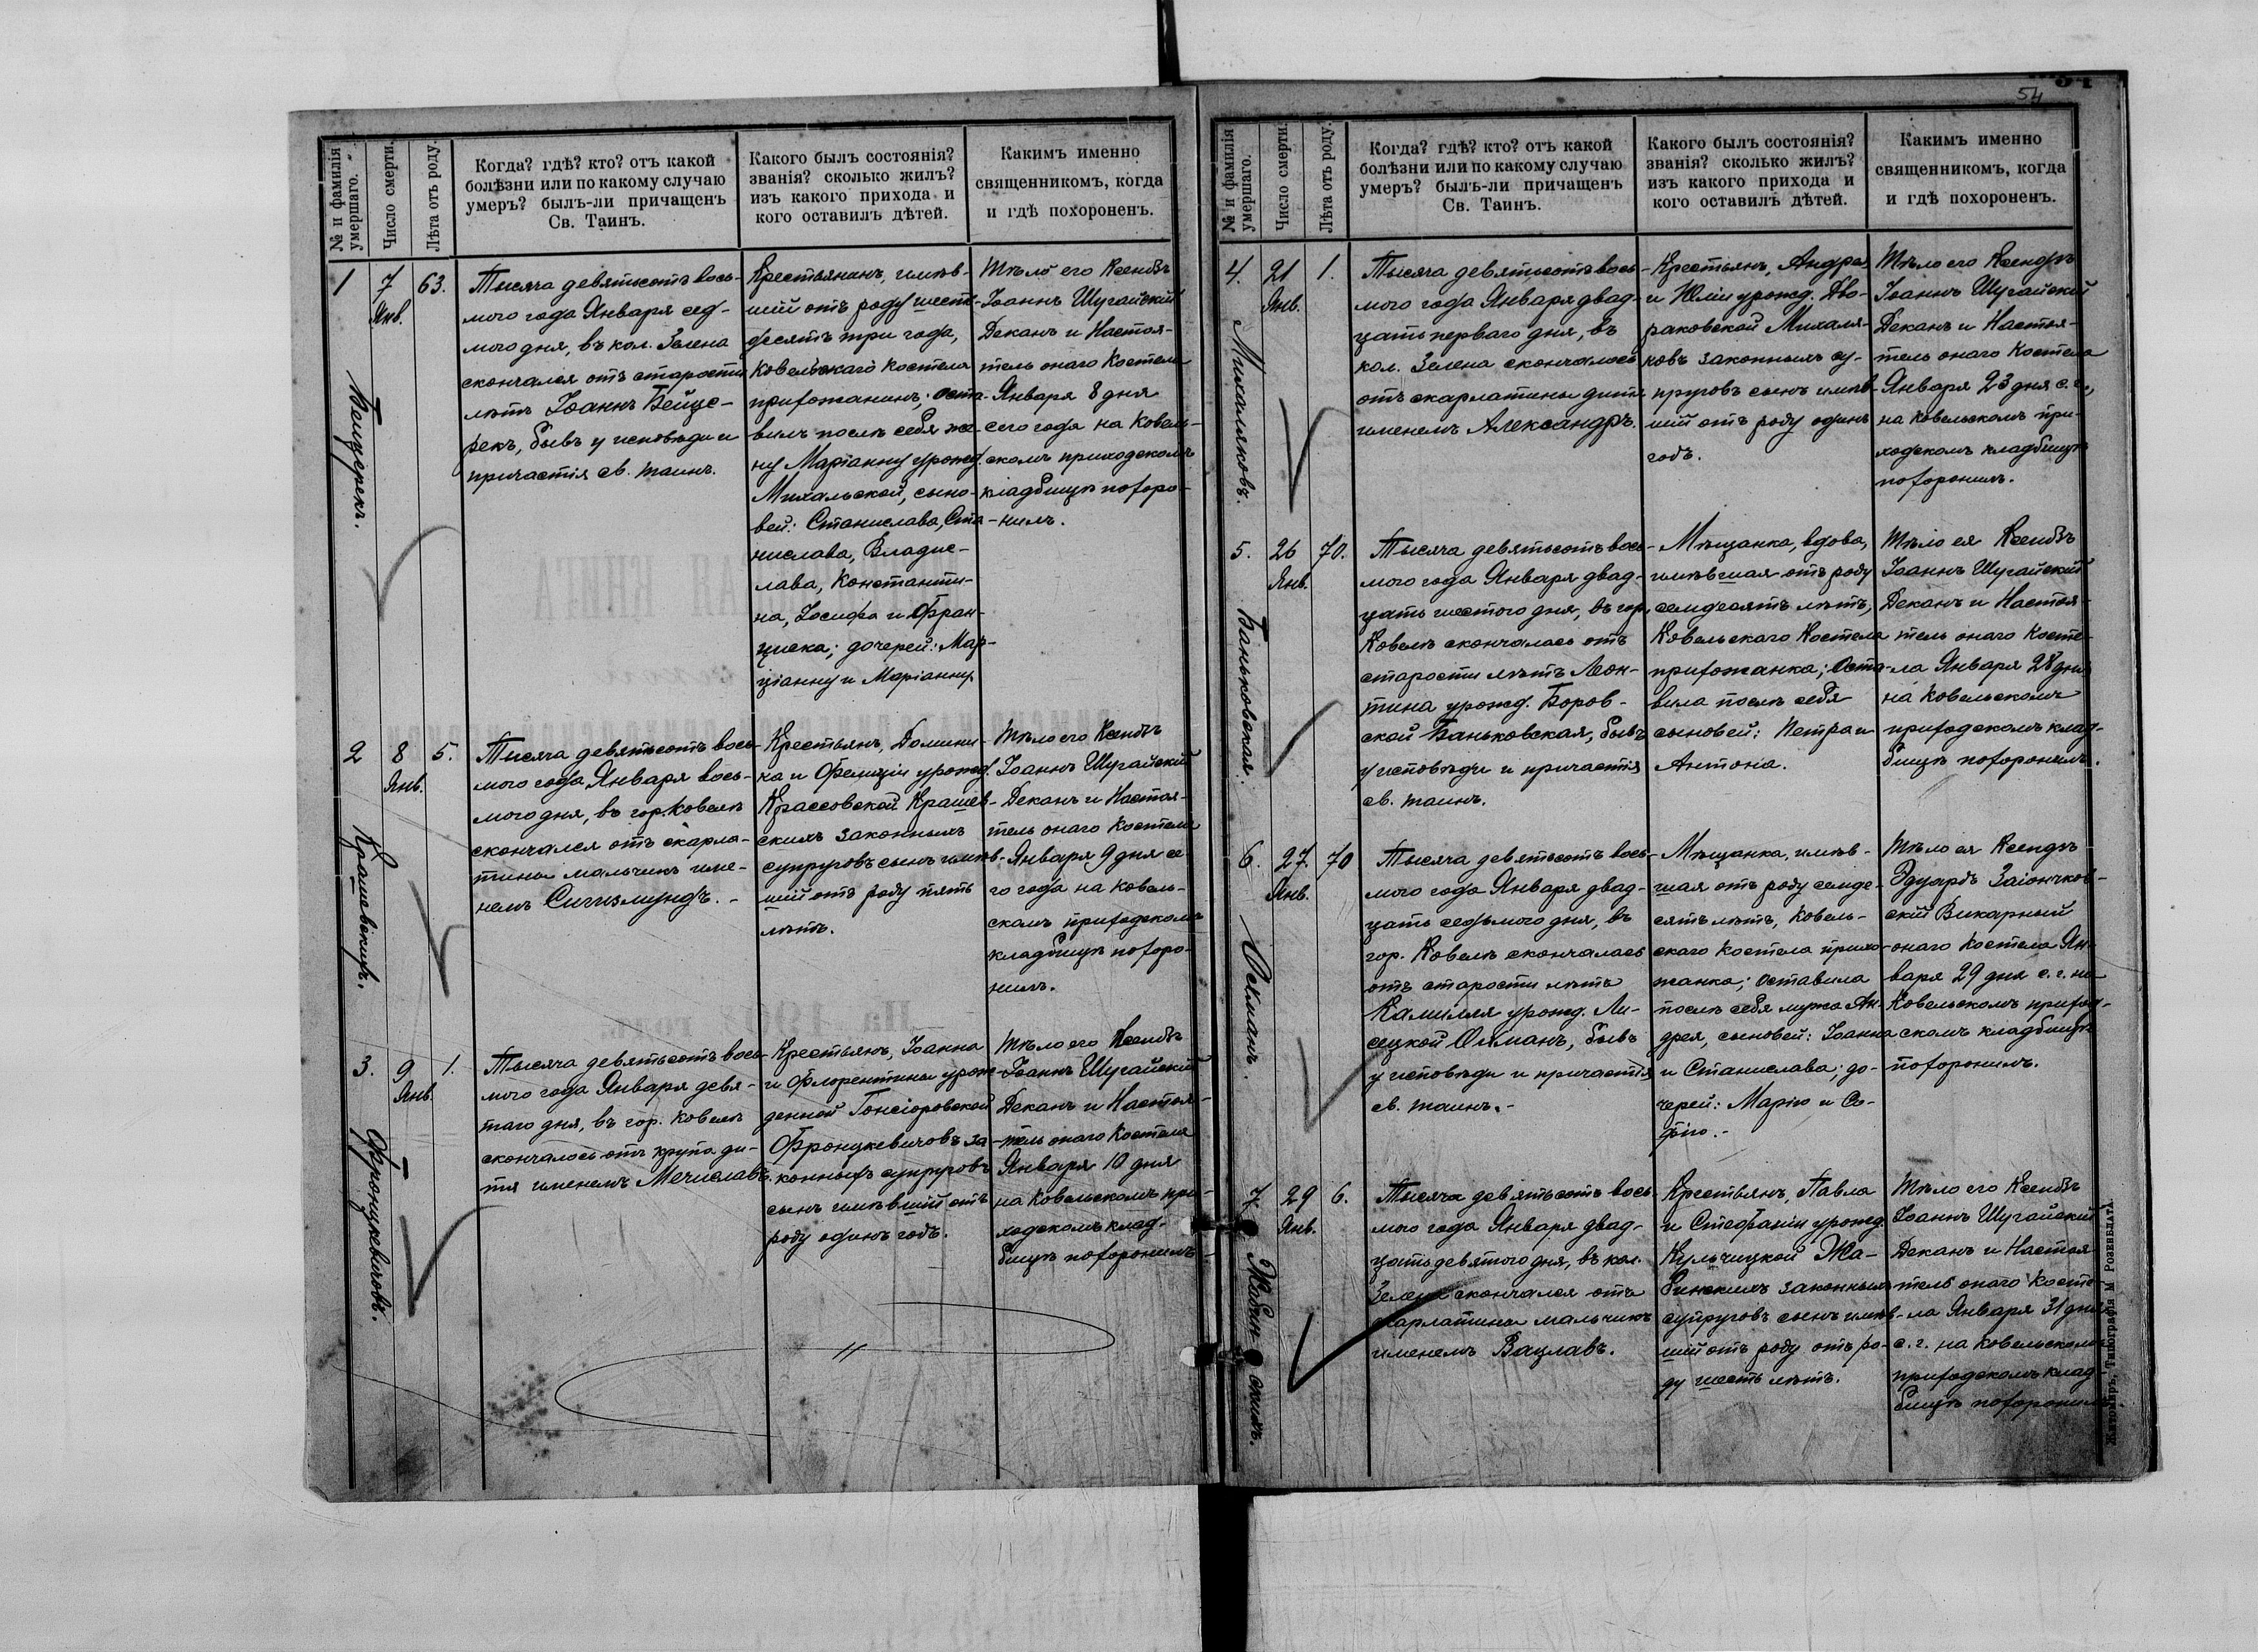 № и фамилія
умершаго.
Число смерти.
Лѣта отъ роду.
Когда? гдѣ? кто? отъ какой
болѣзни или по какому случаю
умеръ? былъ-ли причащенъ
Св. Таинъ.
Какого былъ состоянія?
званія? сколько жилъ?
изъ какого прихода и
кого оставилъ дѣтей.
Какимъ именно
священникомъ, когда
и гдѣ похороненъ.
1
Бейцерекъ.
7
Янв.
63.
Тысяча девятьсотъ вось-
мого года Января сед-
мого дня, въ кол. Зелена
скончался отъ старости
лѣтъ Іоаннъ Бейце-
рекъ, бывъ у исповѣди и
причастія св. таинъ.
Крестьянинъ, имѣв-
шій отъ роду шесть-
десятъ три года,
Ковельскаго костела
прихожанинъ; оста-
вилъ послѣ себя же-
ну Маріанну урожд.
Михальской, сыно-
вей: Станислава, Ста-
нислава, Владис-
лава, Константи-
на, Іосифа и Фран-
циска; дочерей: Мар-
ціанну и Маріанну
Тѣло его Ксендзъ
Іоаннъ Шугайскій
Деканъ и Настоя-
тель онаго Костела
Января 8 дня
сего года на Ковель-
скомъ приходскомъ
кладбищѣ похоро-
нилъ.
2
Крашевскихъ.
8
Янв.
5.
Тысяча девятьсотъ вось-
мого года Января вось-
мого дня, въ гор. Ковелѣ
скончался отъ скарла-
тины мальчикъ име-
немъ Сигизмундъ. -
Крестьянъ, Домини-
ка и Фелиціи урожд.
Крассовской Крашев-
скихъ законныхъ
супруговъ сынъ имѣв-
шій отъ роду пять
лѣтъ.
Тѣло его Ксендзъ
Іоаннъ Шугайскій
Деканъ и Настоя-
тель онаго Костела
Января 9 дня се-
го года на Ковель-
скомъ приходскомъ
кладбищѣ похоро-
нилъ.
3.
Фронцкевичовъ.
9
Янв.
1.
Тысяча девятьсотъ вось-
мого года Января девя-
таго дня, въ гор. Ковелѣ
скончалось отъ крупа ди-
тя именемъ Мечиславъ.
Крестьянъ, Іоанна
и Флорентины урож-
денной Гонсіоровской
Фронцкевичовъ за-
конныхъ супруговъ
сынъ имѣвшій отъ
роду одинъ годъ.
Тѣло его Ксендзъ
Іоаннъ Шугайскій
Деканъ и Настоя-
тель онаго Костела
Января 10 дня
на Ковельскомъ при-
ходскомъ клад-
бищѣ похоронилъ.
54
№ и фамилія
умершаго.
Число смерти.
Лѣта отъ роду.
Когда? гдѣ? кто? отъ какой
болѣзни или по какому случаю
умеръ? былъ-ли причащенъ
Св. Таинъ.
Какого былъ состоянія?
званія? сколько жилъ?
изъ какого прихода и
кого оставилъ дѣтей.
Какимъ именно
священникомъ, когда
и гдѣ похороненъ.
4.
Михаляковъ.
21
Янв.
1.
Тысяча девятьсотъ вось-
мого года Января двад-
цать перваго дня, въ
кол. Зелена скончалось
отъ скарлатины дитя
именемъ Александръ.
Крестьянъ, Андрея
и Юліи урожд. Дво-
раковской Михаля-
ковъ законныхъ су-
пруговъ сынъ имѣв-
шій отъ роду одинъ
годъ.
Тѣло его Ксендзъ
Іоаннъ Шугайскій
Деканъ и Настоя-
тель онаго Костела
Января 23 дня с. г.
на Ковельскомъ при-
ходскомъ кладбищѣ
похоронилъ.
5.
Баньковская.
26
Янв.
70.
Тысяча девятьсотъ вось-
мого года Января двад-
цать шестого дня, въ гор.
Ковелѣ скончалась отъ
старости лѣтъ Леон-
тина урожд. Боров-
ской Баньковская, бывъ
у исповѣди и причастія
св. таинъ.
Мѣщанка, вдова,
имѣвшая отъ роду
семдесятъ лѣтъ,
Ковельскаго Костела
прихожанка; оста-
вила послѣ себя
сыновей: Петра и
Антона.
Тѣло ея Ксендзъ
Іоаннъ Шугайскій
Деканъ и Настоя-
тель онаго Косте-
ла Января 28 дня
на Ковельскомъ
приходскомъ клад-
бищѣ похоронилъ.
6.
Остманъ.
27.
Янв.
70
Тысяча девятьсотъ вось-
мого года Января двад-
цать седьмого дня, въ
гор. Ковелѣ скончалась
отъ старости лѣтъ
Камилля урожд. Ли-
сецкой Остманъ, бывъ
у исповѣди и причастія
св. таинъ. -
Мѣщанка, имѣв-
шая отъ роду семде-
сятъ лѣтъ, Ковель-
скаго костела прихо-
жанка; оставила
послѣ себя мужа Ан-
дрея, сыновей: Іоанна
и Станислава; до-
черей: Марію и Со-
фію. -
Тѣло ея Ксендзъ
Эдуардъ Заіончков-
скій Викарный
онаго костела Ян-
варя 29 дня с. г. на
Ковельскомъ приход-
скомъ кладбищѣ
похоронилъ.
7.
Жабинскихъ.
29
Янв.
6.
Тысяча девятьсотъ вось-
мого года Января двад-
цать девятого дня, въ кол.
Зелена скончался отъ
скарлатины мальчикъ
именемъ Вацлавъ.
Крестьянъ, Павла
и Стефаніи урожд.
Кульчицкой Жа-
бинскихъ законныхъ
супруговъ сынъ имѣв-
шій отъ роду отъ ро-
ду шесть лѣтъ.
Тѣло его Ксендзъ
Іоаннъ Шугайскій
Деканъ и Настоя
тель онаго Косте-
ла Января 31 дня
с. г. на Ковельскомъ
приходскомъ клад
бищѣ похоронилъ
Житомиръ, Типографія М Розенблата.